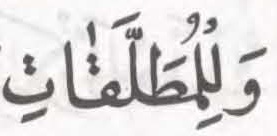 وَلِلْمُطَلَّقٰاتِ